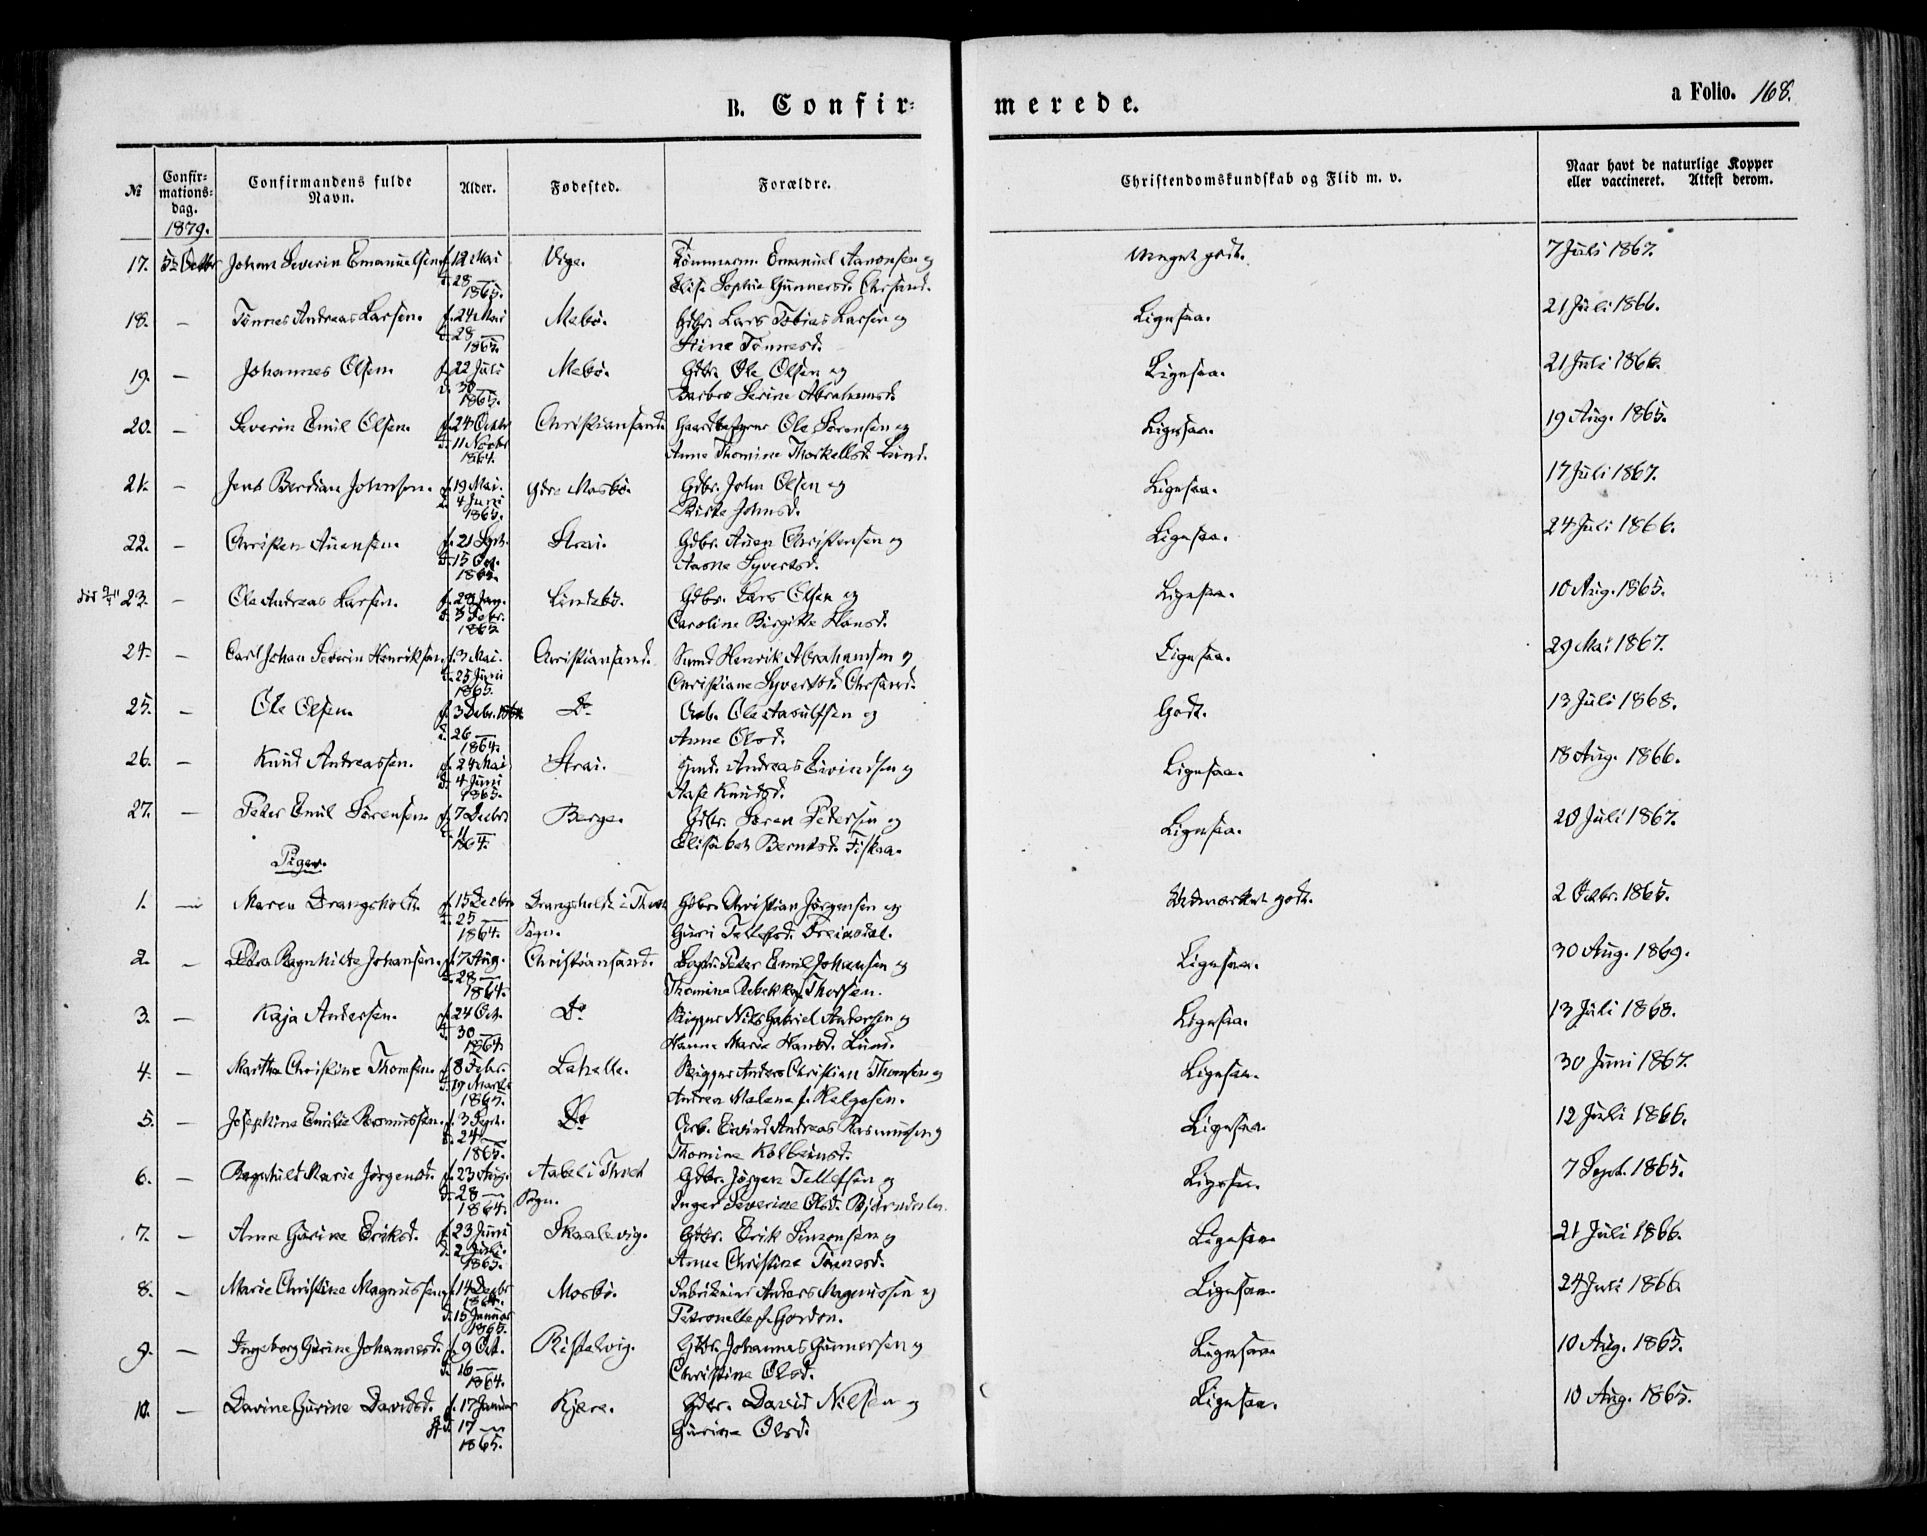 B. Confir- merede. a Folio. 168.
№ Confir- mations- dag. Confirmandens fulde Navn. Alder. Fødested. Forældre. Christendomskundskab og Flid m. v. Naar havt de naturlige Kopper eller vaccineret. Attest derom.
1879.
17. 5te Octbr Johan Severin Emanuelsen f. 12 Mai Vige. Tømmerm. Emanuel Aanonsen og Meget godt. 7 Juli 1867.
d. 28 — 1865. Elise Sophie Gunnersd. Chrsand.
18. — Tønnes Andreas Larsen. f. 24 Mai Mebø. Gdbr. Lars Tobias Larsen og Ligesaa. 21 Juli 1866.
d. 28 — 1865. Stine Tønnesd.
19. — Johannes Olsen f. 22 Juli Mebø. Gdbr. Ole Olsen og Ligesaa. 21 Juli 1866.
d. 30 — 1865. Barbro Serine Abrahamsd.
20. — Severin Emil Olsen. f. 24 Octbr Christiansand. Ole Sørensen og Ligesaa. 19 Aug. 1865.
d. 11 Novbr 1864. Anne Thomine Thorkellsd. Lund.
21. — Jens Berdian Johnsen. f. 19 Mai. Ydre Mosbø. Gdbr. John Olsen og Ligesaa. 17 Juli 1867.
d. 4 Juni 1865. Birte Johnsd.
22. — Christen Auensen. f. 21 Sept. Strai. Gdbr. Auen Christensen og Ligesaa. 24 Juli 1866.
d. 15 Oct. 1865. Aasne Syvertsd.
23. — Ole Andreas Larsen. f. 28 Jan. Lindebø. Gdbr. Lars Olsen og Ligesaa. 10 Aug. 1865.
d. 5 Febr. 1865 Caroline Birgitte Hansd.
24. — Carl Johan Severin Henriksen f. 3 Mai. Christiansand. Smed Henrik Abrahamsen og Ligesaa. 29 Mai 1867.
d. 25 Juni 1865. Christiane Syvertsd. Chrsand.
25. — Ole Olsen. f. 3 Debr. 1864 Do Arb. Ole Aasulfsen og Godt. 13 Juli 1868.
d. 26 — 1864. Anne Olsd.
26. — Knud Andreassen. f. 24 Mai Strai. Andreas Eivindsen og Ligesaa. 18 Aug. 1866.
d. 4 Juni 1865. Aase Knudsd.
27. — Peter Emil Sørensen. f. 7 Decbr Berge. Gdbr. Søren Petersen og Ligesaa. 20 Juli 1867.
d. 11 — 1864. Elisabet Berntsd. Fiskaa.
Piger.
1. — Maren Drangsholt. f. 15 Decbr Drangsholt i Thveit Gdbr. Christian Jørgensen og Udmærket godt. 2 Octbr. 1865.
d. 25 — 1864. Sogn. Guri Tellefsd. Dreivdal.
2. — Petra Ragnhilde Johansen. f. 7 Aug. Christiansand. Peter Emil Johansen og Ligesaa. 30 Aug. 1869.
d. 28 — 1864. Thomine Rebekka f. Thorsen.
3. — Kaja Andersen. f. 24 Oct. Do Rigger Nils Gabriel Andersen og Ligesaa. 13 Juli 1868.
d. 30 — 1864. Hanne Marie Hansd. Lund.
4. — Martha Christine Thomsen. f. 8 Febr. Lahelle. Rigger Anders Christian Thomsen og Ligesaa. 30 Juni 1867.
d. 19 Marts 1865. Andrea Malena f. Helgesen.
5. — Josephine Emilie Rasmussen. f. 3 Sept. Do Arb. Eivind Andreas Rasmussen og Ligesaa. 12 Juli 1866.
d. 24 — 1865. Thomine Kolbeinsd.
6. — Ragnhild Marie Jørgensd. f. 23 Aug. Aabel i Thveit Gdbr. Jørgen Tellefsen og Ligesaa. 7 Sept. 1865.
d. 28 — 1864. Sogn. Inger Severine Olsd. Bjørndalen.
7. — Anne Gurine Eriksd. f. 23 Juni Skaalevig. Gdbr. Erik Simonsen og Ligesaa. 21 Juli 1866.
d. 2 Juli. 1865. Anne Christine Tønnesd.
8. — Marie Christine Magnussen f. 14 Decbr 1864. Mosbø. Anders Magnussen og Ligesaa. 24 Juli 1866.
d. 15 Januar 1865. Petronelle f. Gordon.
9. — Ingeborg Gurine Johannesd. f. 9 Oct. Ristelvig. Gdbr. Johannes Gunnersen og Ligesaa. 10 Aug. 1865.
d. 16 — 1864. Christine Olsd.
10. — Davine Gurine Davidsd. f. 17 Januar Kjere. Gdbr. David Nilsen og Ligesaa. 10 Aug. 1865.
d. 17 — 1865. Gurine Olsd.